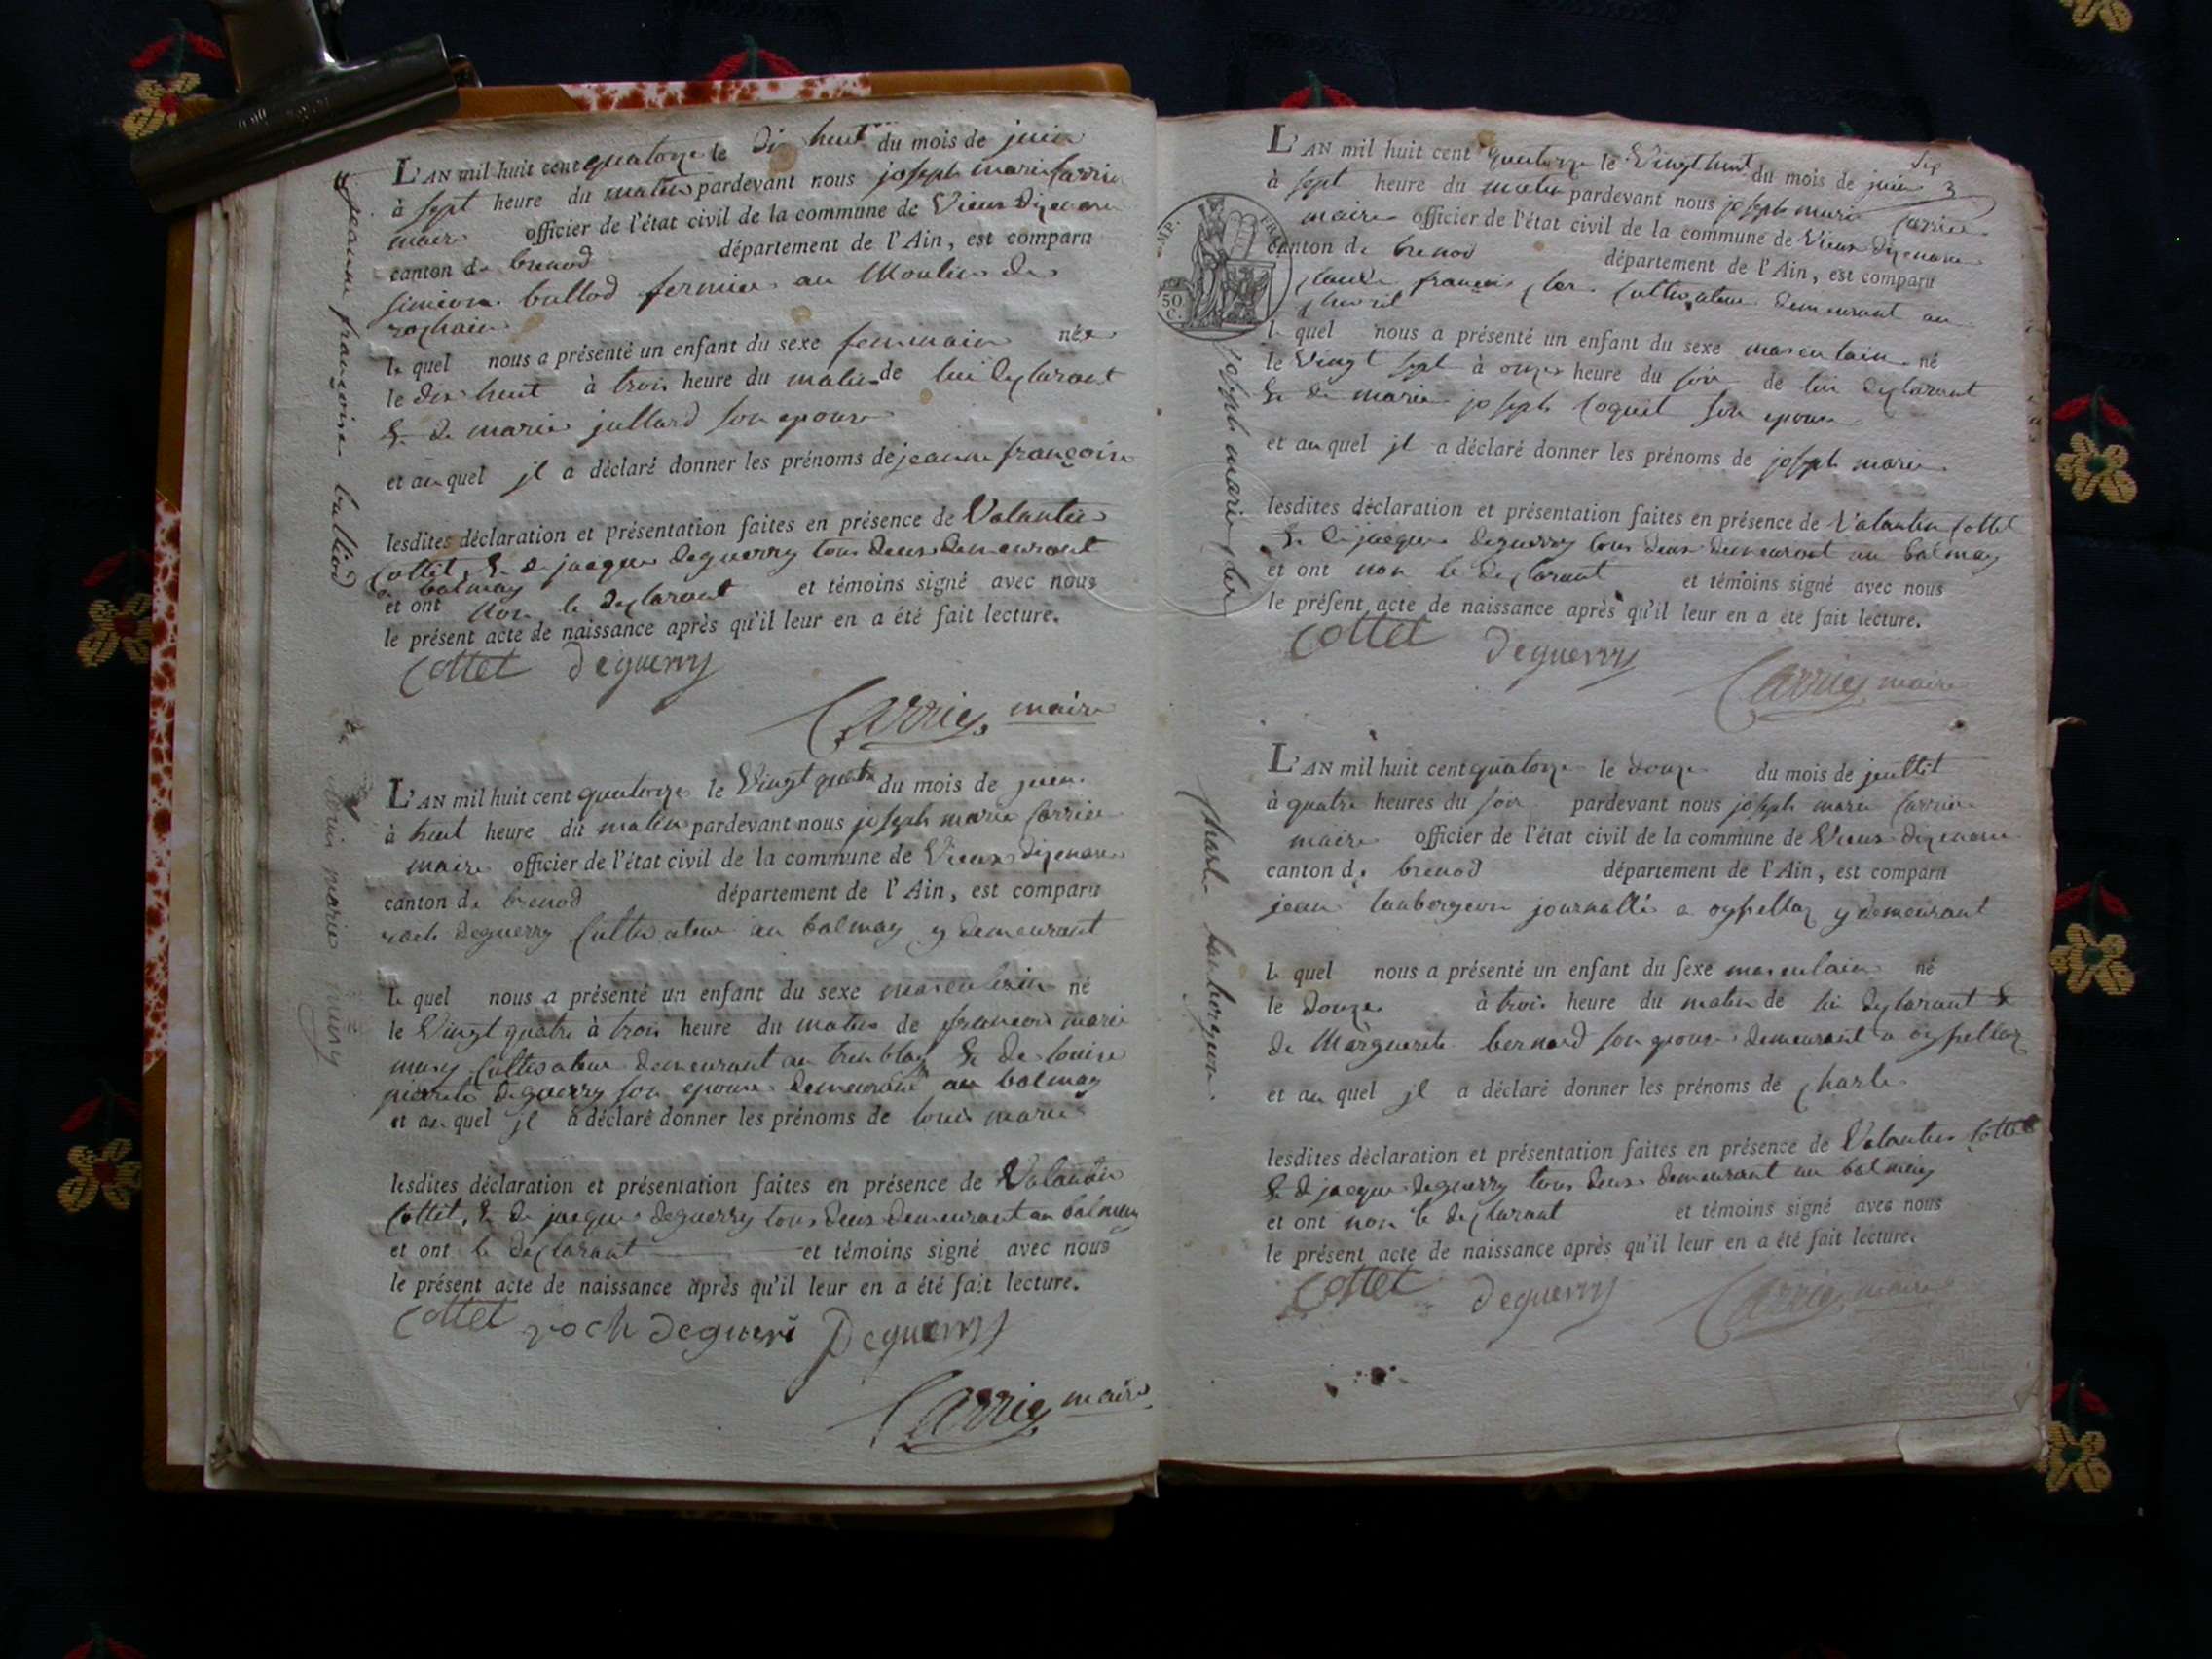 L'AN mil huit cent quatorze le dix huit du mois de juin
à sept heure du matin pardevant nous joseph marie Carrier
maire officier de l'état civil de la commune de Vieux dizenave
canton de brenod département de l'Ain, est comparu
simeon balliod fermier au Moulin de
rochair
le quel nous a présenté un enfant du sexe feminain née
le dix huit à trois heure du matin de lui declarant
& de marie jullard son epouse
et au quel jl a déclaré donner les prénoms de jeanne françoise
lesdites déclaration et présentation faites en présence de Valantin
Cottet, & de jacque deguerry tous deux demeurant
au balmay
et ont non le declarant et témoins signé avec nous
le présent acte de naissance après qu'il leur en a été fait lecture.
Cottet Deguerry
Carrier maire
jeanne françoise balliod
L'AN mil huit cent quatorze le Vingt quatre du mois de juin
à huit heure du matin pardevant nous joseph marie Carrier
maire officier de l'état civil de la commune de Vieux dizenave
canton de brenod département de l'Ain, est comparu
roch deguerry Cultivateur au balmay y demeurant
le quel nous a présenté un enfant du sexe masculain né
le Vingt quatre à trois heure du matin de francois marie
mury Cultivateur demeurant au tremblay & de louise
pierrete deguerry son epouse demeurant au balmay
et au quel jl a déclaré donner les prénoms de louis marie
lesdites déclaration et présentation faites en présence de Valantin
Cottet, & de jacque deguerry tous deux demeurant au balmay
et ont le declarant et témoins signé avec nous
le présent acte de naissance après qu'il leur en a été fait lecture.
Cottet roch degueri Deguerry
Carrier maire
louis marie mury
L'AN mil huit cent quatorze le Vingt huit du mois de juin
à sept heure du matin pardevant nous joseph marie Carrier
maire officier de l'état civil de la commune de Vieux dizenave
canton de brenod département de l'Ain, est comparu
Claude françois Cultivateur demeurant au
le quel nous a présenté un enfant du sexe masculain né
le Vingt sept à onze heure du soir de lui declarant
& de marie joseph Coquet son epouse
et au quel jl a déclaré donner les prénoms de joseph marie
lesdites déclaration et présentation faites en présence de Valantin Cottet
& de jacque deguerry tous deux demeurant au balmay
et ont non le declarant et témoins signé avec nous
le présent acte de naissance après qu'il leur en a été fait lecture.
Cottet Deguerry
Carrier maire
joseph marie
50 C.
L'AN mil huit cent quatorze le douze du mois de jeullet
à quatre heures du soir pardevant nous joseph marie Carrier
maire officier de l'état civil de la commune de Vieux dizenave
canton de brenod département de l'Ain, est comparu
jean banbergeon journallié a oyssellaz y demeurant
le quel nous a présenté un enfant du sexe masculain né
le douze à trois heure du matin de lui declarant &
de Marguerite bernard son epouse demeurant a oysellaz
et au quel jl a déclaré donner les prénoms de Charle
lesdites déclaration et présentation faites en présence de Valantin Cottet
& de jacque deguerry tous deux demeurant au balmay
et ont non le declarant et témoins signé avec nous
le présent acte de naissance après qu'il leur en a été fait lecture.
Cottet Deguerry Carrier maire
Charle banbergeon